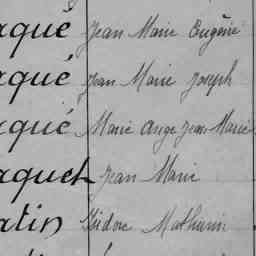 aqué Jean Marie Eugène
aqué Jean Marie Joseph
aqué Marie Ange Jean Marie
aquet Jean Marie
atin Isidore Mathurin